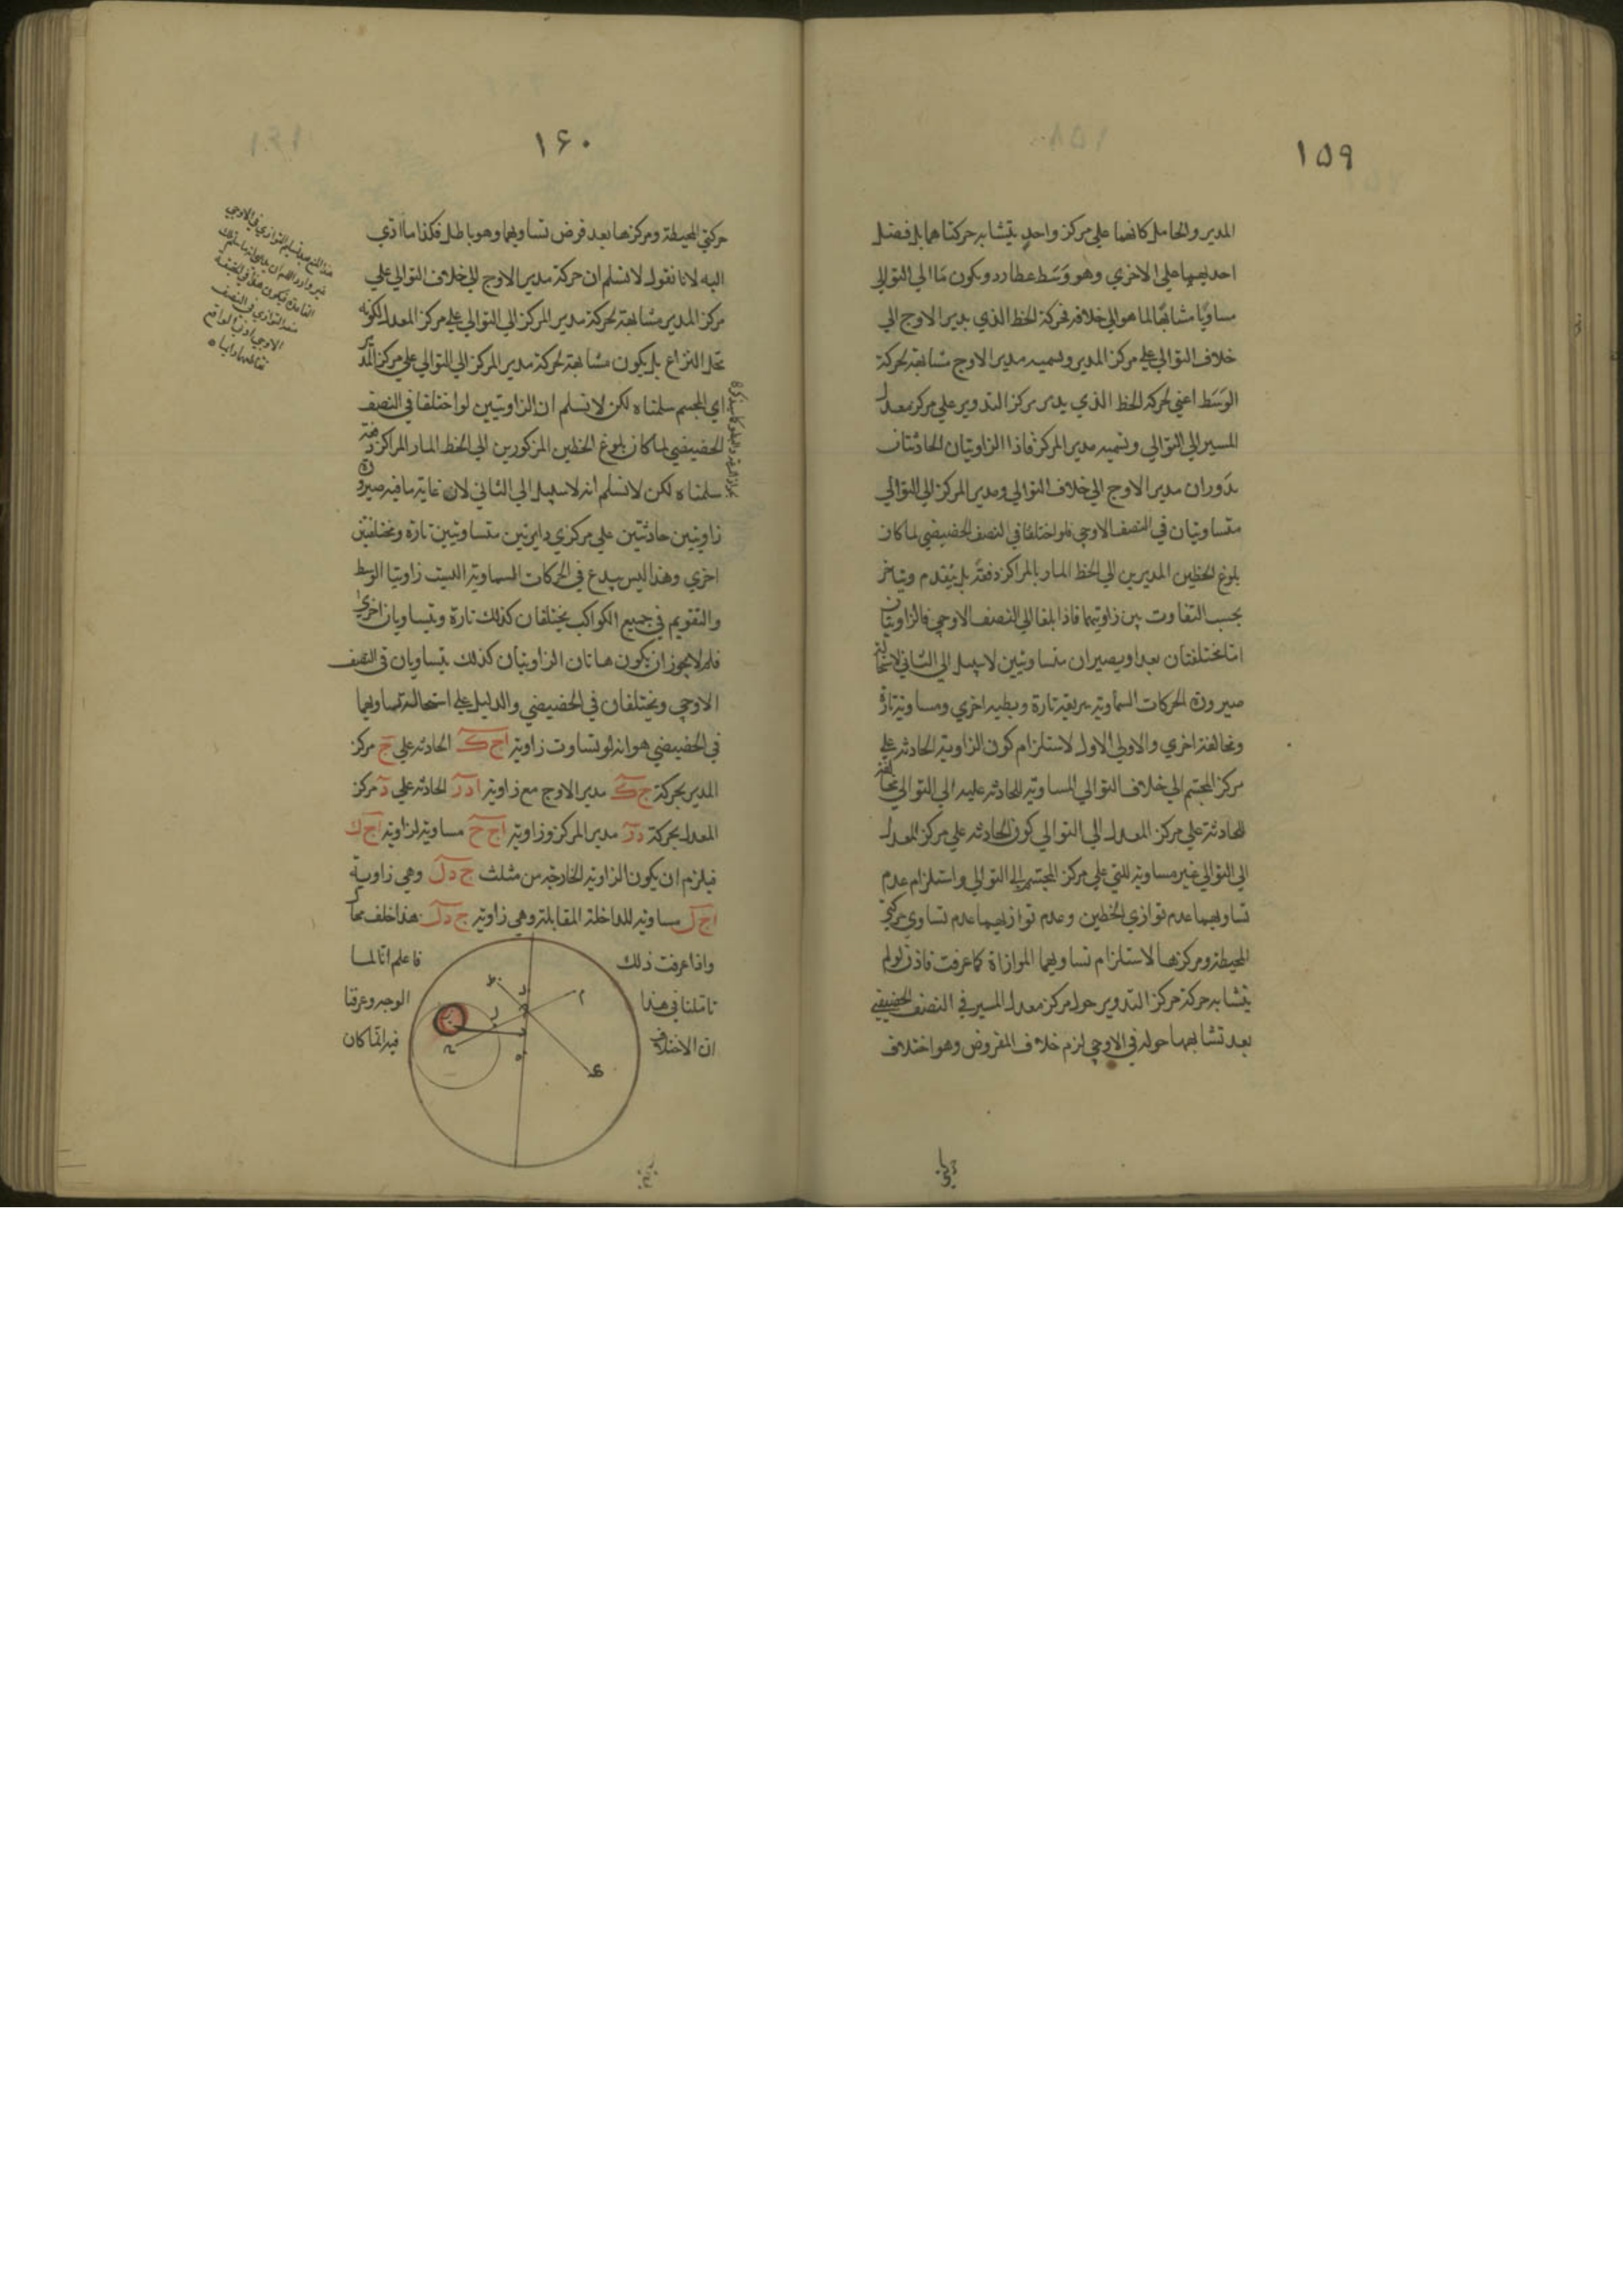 ١٥٩
المدير والحامل كانهما على مركز واحد يتشابه حركتاهما بل فضل
احديهما على الاخري وهو وَسَط عطارد ويكون مَا الي التوالي
مساويًا مشابهًا لما هو الي خلافه فحركة الخط الذي يدير الاوج الي
خلاف التوالي علي مركز المدير ونسميه مدير الاوج مشابهة لحركة
الوَسَط اعني لحركة الخط الذي يدير مركز التدوير علي مركز معدل
المسير الي التوالي ونسميه مدير المركز فاذا الزاويتان الحادثتان
بدَوران مدير الاوج الي خلاف التوالي ومدير المركز الي التوالي
متساويتان في النصف الاوجي فلو اختلفتا في النصف الحضيضي لما كان
بلوغ الخطين المديرين الي الخط المار بالمراكز دفعةً بل يتقدم ويتاخر
بحسب التفاوت بين زاويتيهما فاذا بلغا الي النصف الاوجي فالزاويتان
امّا مختلفتان بعد او يصيران متساويتين لا سبيل الي الثاني لاستحالة
صيرورة الحركات السّماوية سريعة تارة وبطيه اخري ومساوية تارة
ومخالفة اخري والاولي الاول لاستلزام كون الزاوية الحادثه علي
مركز المجسم الي خلاف التوالي المساوية للحادثه عليه الي التوالي مخالفة
للحادثة علي مركز المعدل الي التوالي كون الحادثه علي مركز المعدل
الي التوالي غير مساوية للتي علي مركز المجسم الي التوالي واستلزام عدم
تساويهما عدم توازي الخطين وعدم توازيهما عدم تساوي حركتي
المحيطة ومركزها لاستلزام تساويهما الموازاة كما عرفت فاذن لو لم
يتشابه حركة مركز التدوير حول مركز معدل المسير في النصف الحضيضي
بعد تشابهما حوله في الاوجي لزم خلاف المفروض وهو اختلاف
١۶٠
حركتي المحيطة ومركزها بعد فرض تساويهما وهو باطل فكذا ما ادّي
اليه لانا نقول لا نسلم ان حركة مدير الاوج الي خلاف التوالي علي
مركز المدير مشابهة لحركة مدير المركز الي التوالي علي مركز المعدل لكونه
محل النزاع بل يكون مشابهة لحركة مدير المركز الي التوالي علي مركز المدير
اي المجسم سلمناه لكن لا نسلم ان الزاويتين لو اختلفا في النصف
الحضيضي لما كان بلوغ الخطين المذكورين الي الخط المار المراكز دفعة
سلمناه لكن لا نسلم انه لا سبيل الي الثاني لان غاية ما فيه صيرورة
زاويتين حادثتين علي مركزي دايرتين متساويتين تارة ومختلفتين
اخري وهذا ليس ببدع في الحركات السماوية اليست زاويتا الوسط
والتقويم في جميع الكواكب يختلفان كذلك تارة ويتساويان اخري
فلم لا يجوز ان يكون هاتان الزاويتان كذلك يتساويان في النصف
الاوجي ويختلفان في الحضيضي والدليل علي استحالة تساويهما
في الحضيضي هو انه لو تساوت زاوية اج ك الحادثه علي ج مركز
المدير بحركة ج ك مدير الاوج مع زاوية ادر الحادثه علي د مركز
المعدل بحركة در مدير المركز وزاوية اج ح مساوية لزاوية اج ك
فيلزم ان يكون الزاوية الخارجة من مثلث ج د ل وهي زاوية
اج ل مساوية للداخلة المقابلة وهي زاوية ج د ل هذا خلف محال
واذا عرفت ذلك فاعلم انّا لما
تاملنا في هذا الوجه وعرفنا
ان الاختلاف فيه انّما كان